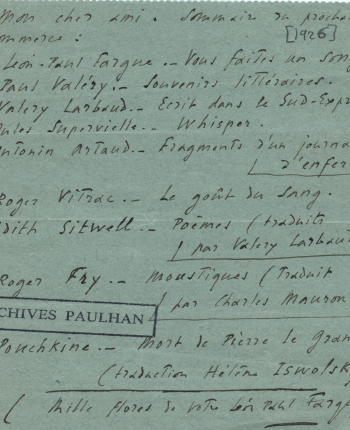 Mon cher ami. Sommaire du prochai
[1926]
mmerce :
Léon-Paul Fargue._ Vous faites un song
Paul Valéry._ Souvenirs littéraires.
Valery Larbaud._ Ecrit dans le Sud-Expr
ules Supervielle._ Whisper.
Antonin Artaud._ Fragments d'un journa
d'enfer
Roger Vitrac._ Le goût du Sang.
dith Sitwell._ Poèmes (traduits
par Valery Larbaud
Roger Fry._ Moustiques (Traduit
par Charles Mauron
CHIVES PAULHAN
Pouchkine._ Mort de Pierre le Gran
(traduction Hélène Iswolsky
( Mille flores de votre Léon Paul Fargu